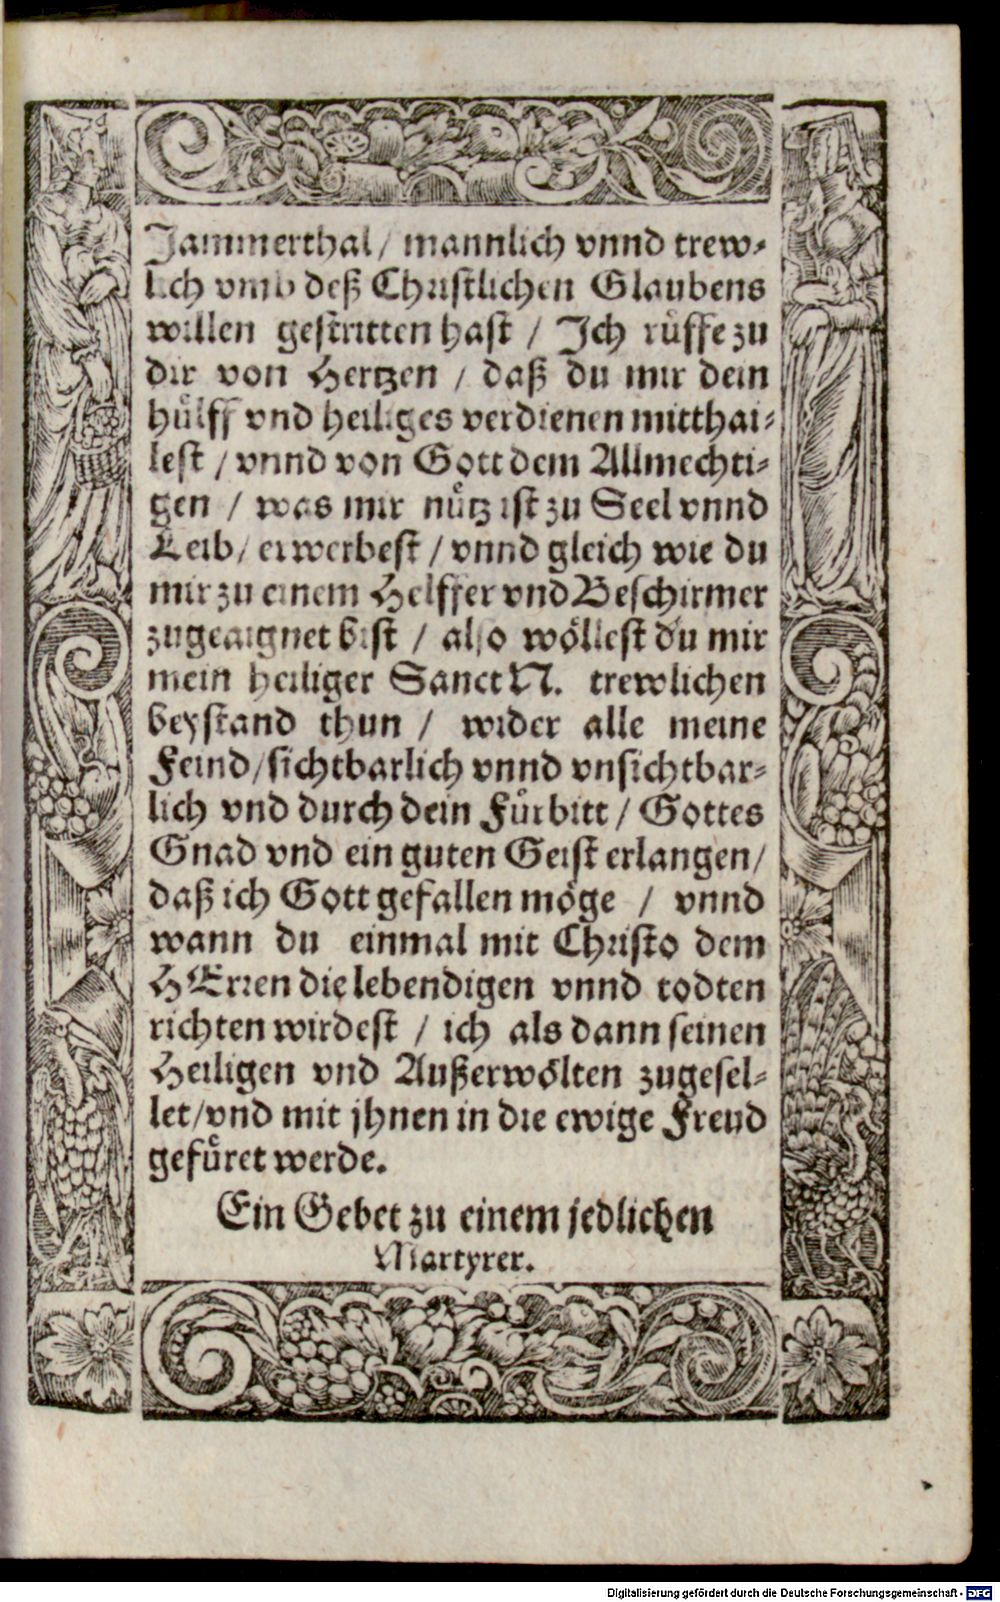 Jammerthal / mannlich vnnd trew-
lich vmb deß Christlichen Glaubens
willen gestritten hast / Ich růffe zu
dir von Hertzen / daß du mir dein
hůlff vnd heiliges verdienen mitthai-
lest / vnnd von Gott dem Allmechti-
gen / was mir nůtz ist zu Seel vnnd
Leib / erwerbest / vnnd gleich wie du
mir zu einem Helffer vnd Beschirmer
zugeaignet bist / also wöllest du mir
mein heiliger Sanct N. trewlichen
beystand thun / wider alle meine
Feind / sichtbarlich vnnd vnsichtbar-
lich vnd durch dein Fůrbitt / Gottes
Gnad vnd ein guten Geist erlangen /
daß ich Gott gefallen möge / vnnd
wann du einmal mit Christo dem
HErren die lebendigen vnnd todten
richten wirdest / ich als dann seinen
Heiligen vnd Außerwölten zugesel-
let / vnd mit jhnen in die ewige Freud
gefůret werde.
Ein Gebet zu einem jedlichen
Martyrer.
Digitalisierung gefördert durch die Deutsche Forschungsgemeinschaft - DFG